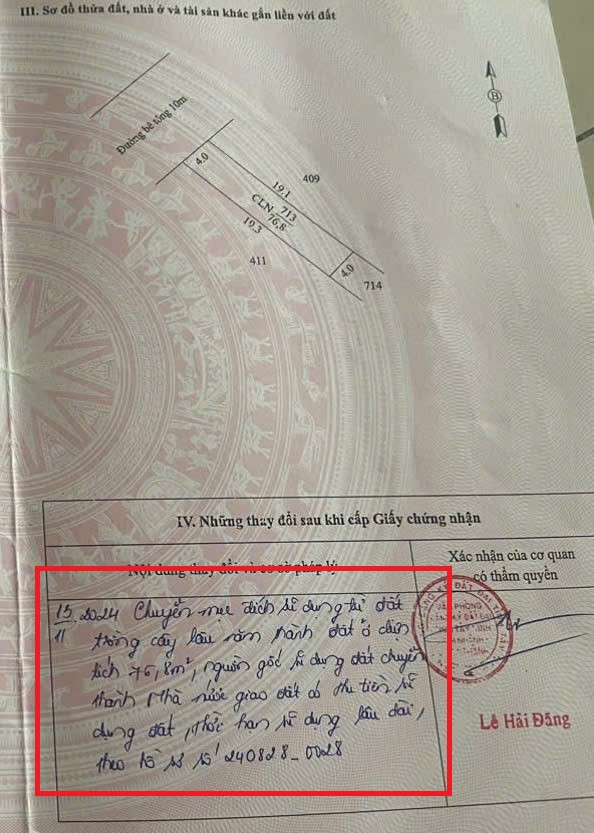 III. Sơ đồ thửa đất, nhà ở và tài sản khác gắn liền với đất
B
Đường bê tông 10m
4,0
19.1
409
CLN 713
76,8
19.3
411
4,0
714
IV. Những thay đổi sau khi cấp Giấy chứng nhận
Nội dung thay đổi và cơ sở pháp lý
Xác nhận của cơ quan
có thẩm quyền
15.2024 Chuyển mục đích sử dụng từ đất
11 trồng cây lâu năm thành đất ở diện
tích 76,8m², nguồn gốc sử dụng đất chuyển
thành Nhà nước giao đất có thu tiền sử
dụng đất, thời hạn sử dụng lâu dài,
theo hồ sơ số 240828_0028
VĂN PHÒNG
Lê Hải Đăng